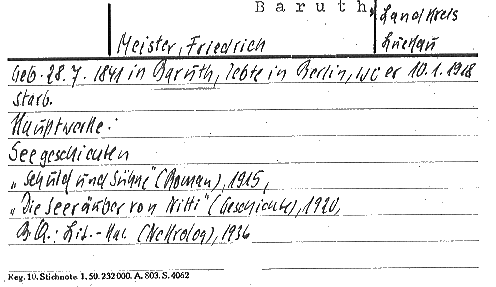 Baruth, Landkreis
Luckau
Meister, Friedrich
Geb. 28. 7. 1841 in Baruth, lebte in Berlin, wo er 10.1.1918
starb.
Hauptwerke:
Seegeschichten
„Schuld und Sühne" (Roman), 1915,
„Die Seeräuber von Nitti" (Geschichte), 1920,
B.Q.: Lit.-Kal. (Nekrolog), 1936
Reg. 10. Stichnote 1. 50. 232000. A. 803. S. 4062